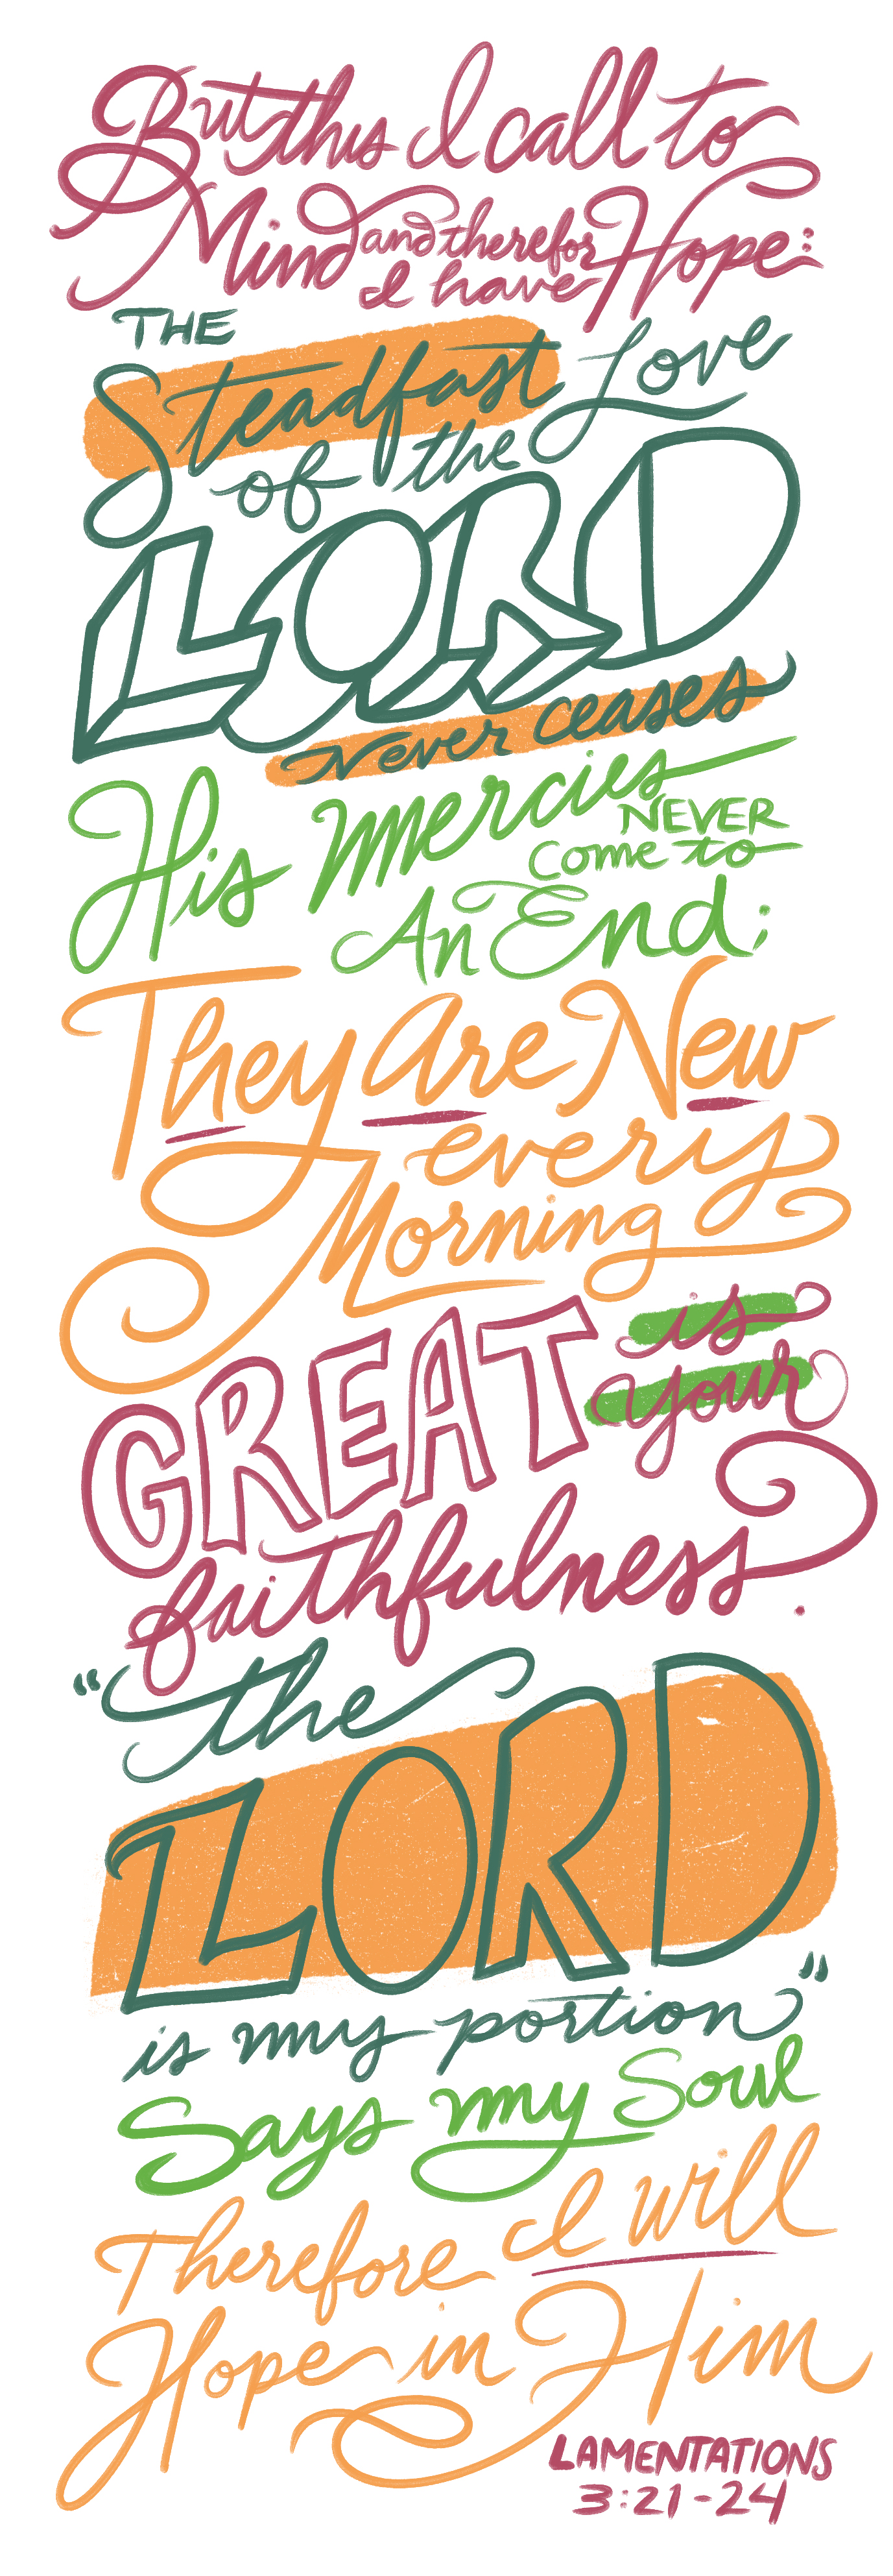 But this I call to
Mind and therefor
I have Hope:
THE
Steadfast Love
of the
LORD
Never ceases
His mercies
NEVER
come to
An End;
They Are New
every
Morning
GREAT is
your
faithfulness.
“the
LORD
is my portion”
Says my Soul
Therefore I will
Hope in Him
LAMENTATIONS
3:21-24